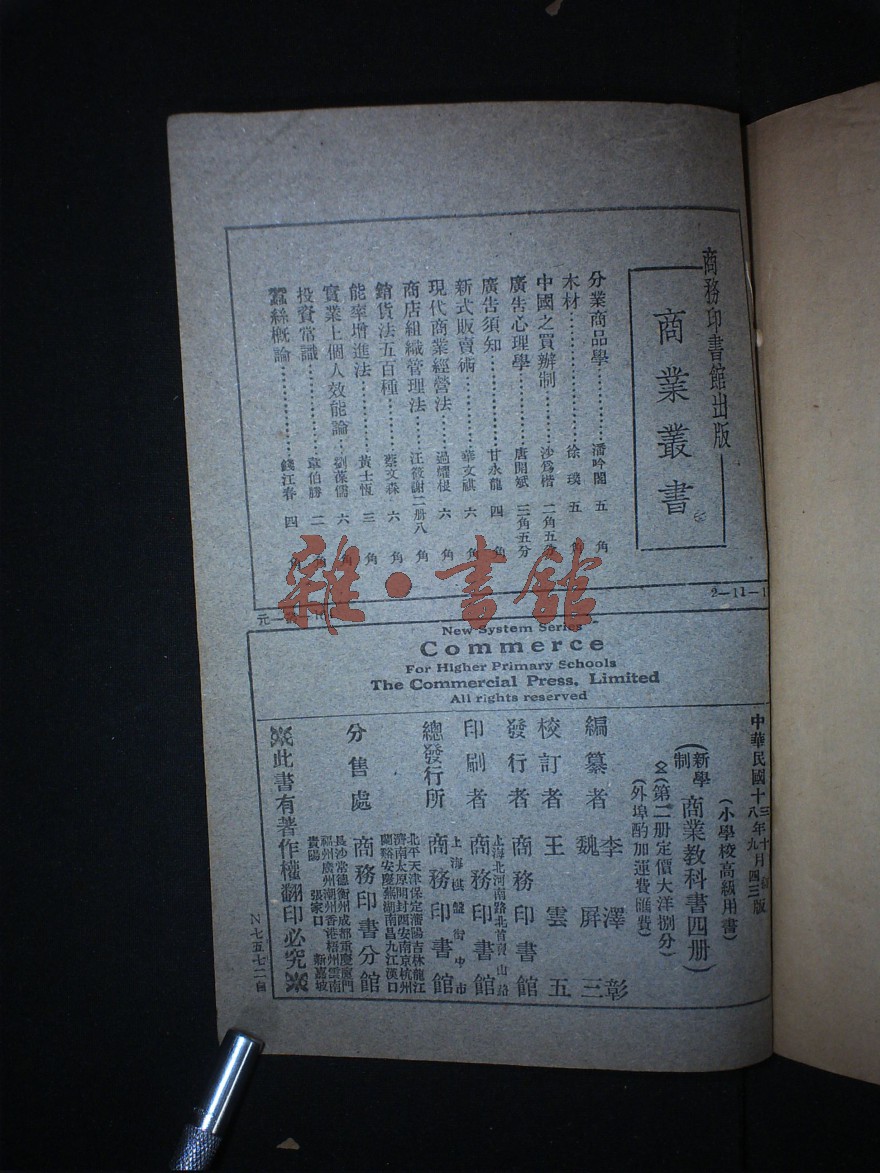 商務印書館出版
商業叢書
分業商品學 潘吟閣 五角
木材 徐璞 五角
中國之買辦制 沙爲楷 二角五分
廣告心理學 唐開斌 三角五分
廣告須知 甘永龍 四角
新式販賣術 華文祺 六角
現代商業經營法 過耀根 六角
商店組織管理法 汪筱謝 二册八角
銷貨法五百種 蔡文森 六角
能率增進法 黃士恆 三角
實業上個人效能論 劉葆儒 六角
投資常識 韋伯勝 二角
蠶絲概論 錢江春 四角
2—11—1
雜·書館
New System Series
Commerce
For Higher Primary Schools
The Commercial Press, Limited
All rights reserved
(小學校高級用書)
(新學制 商業教科書四册)
(第二册定價大洋捌分)
(外埠酌加運費匯費)
編纂者 李澤彰 魏屏三
校訂者 王雲五
發行者 商務印書館
印刷者 上海北河南路北首寶山路 商務印書館
總發行所 上海棋盤街中市 商務印書館
分售處 商務印書分館
北平天津保定瀋陽吉林龍江
濟南太原開封西安南京杭州
蘭谿安慶蕪湖南昌九江漢口
長沙常德衡州成都重慶廈門
福州廣州潮州香港梧州雲南
貴陽 張家口 新嘉坡
此書有著作權翻印必究